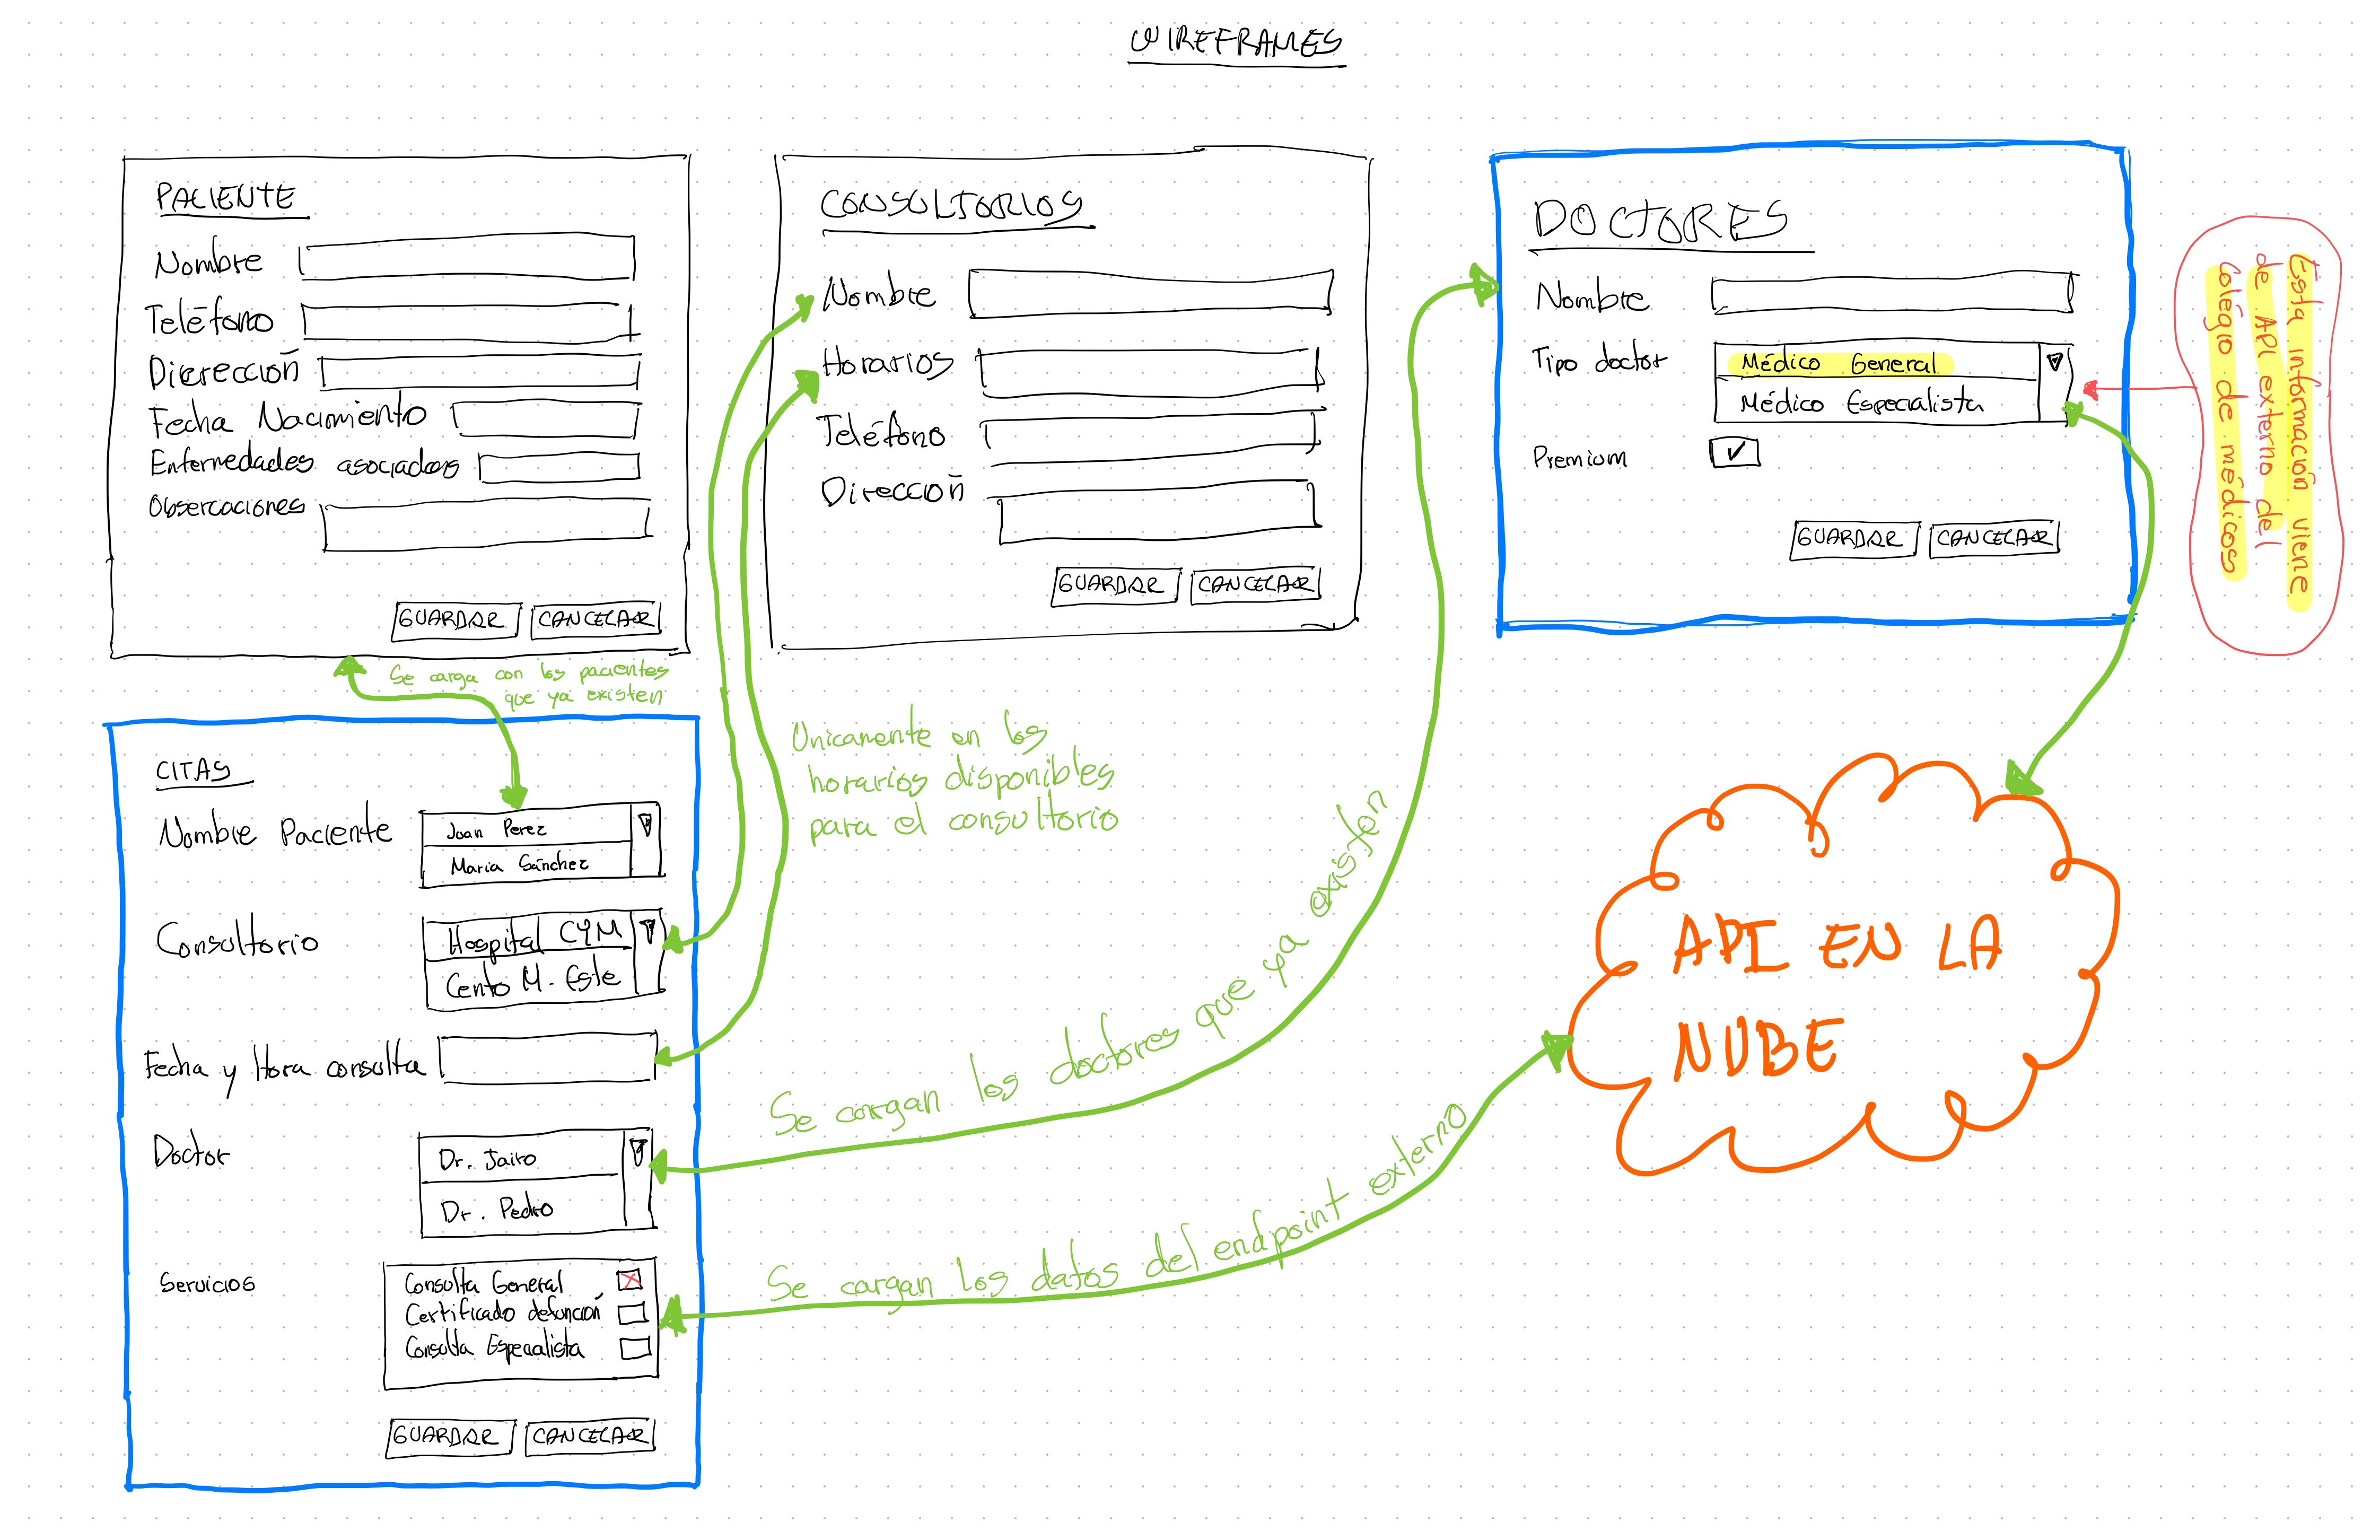 WIREFRAMES
PACIENTE
Nombre
Teléfono
Direrección
Fecha Nacimiento
Enfermedades asociadas
Observaciones
GUARDAR CANCELAR
CONSULTORIOS
Nombre
Horarios
Teléfono
Dirección
GUARDAR CANCELAR
DOCTORES
Nombre
Tipo doctor
Médico General
Médico Especialista
Premium
GUARDAR CANCELAR
Esta información viene
de API externo del
colegio de médicos
Se carga con los pacientes
que ya existen
CITAS
Nombre Paciente
Juan Perez
Maria Sánchez
Consultorio
Hospital CYM
Cento M. Este
Fecha y Hora consulta
Doctor
Dr. Jairo
Dr. Pedro
Servicios
Consulta General
Certificado defunción
Consulta Especialista
GUARDAR CANCELAR
Unicamente en los
horarios disponibles
para el consultorio
Se cargan los doctores que ya existen
Se cargan los datos del endpoint externo
API EN LA
NUBE